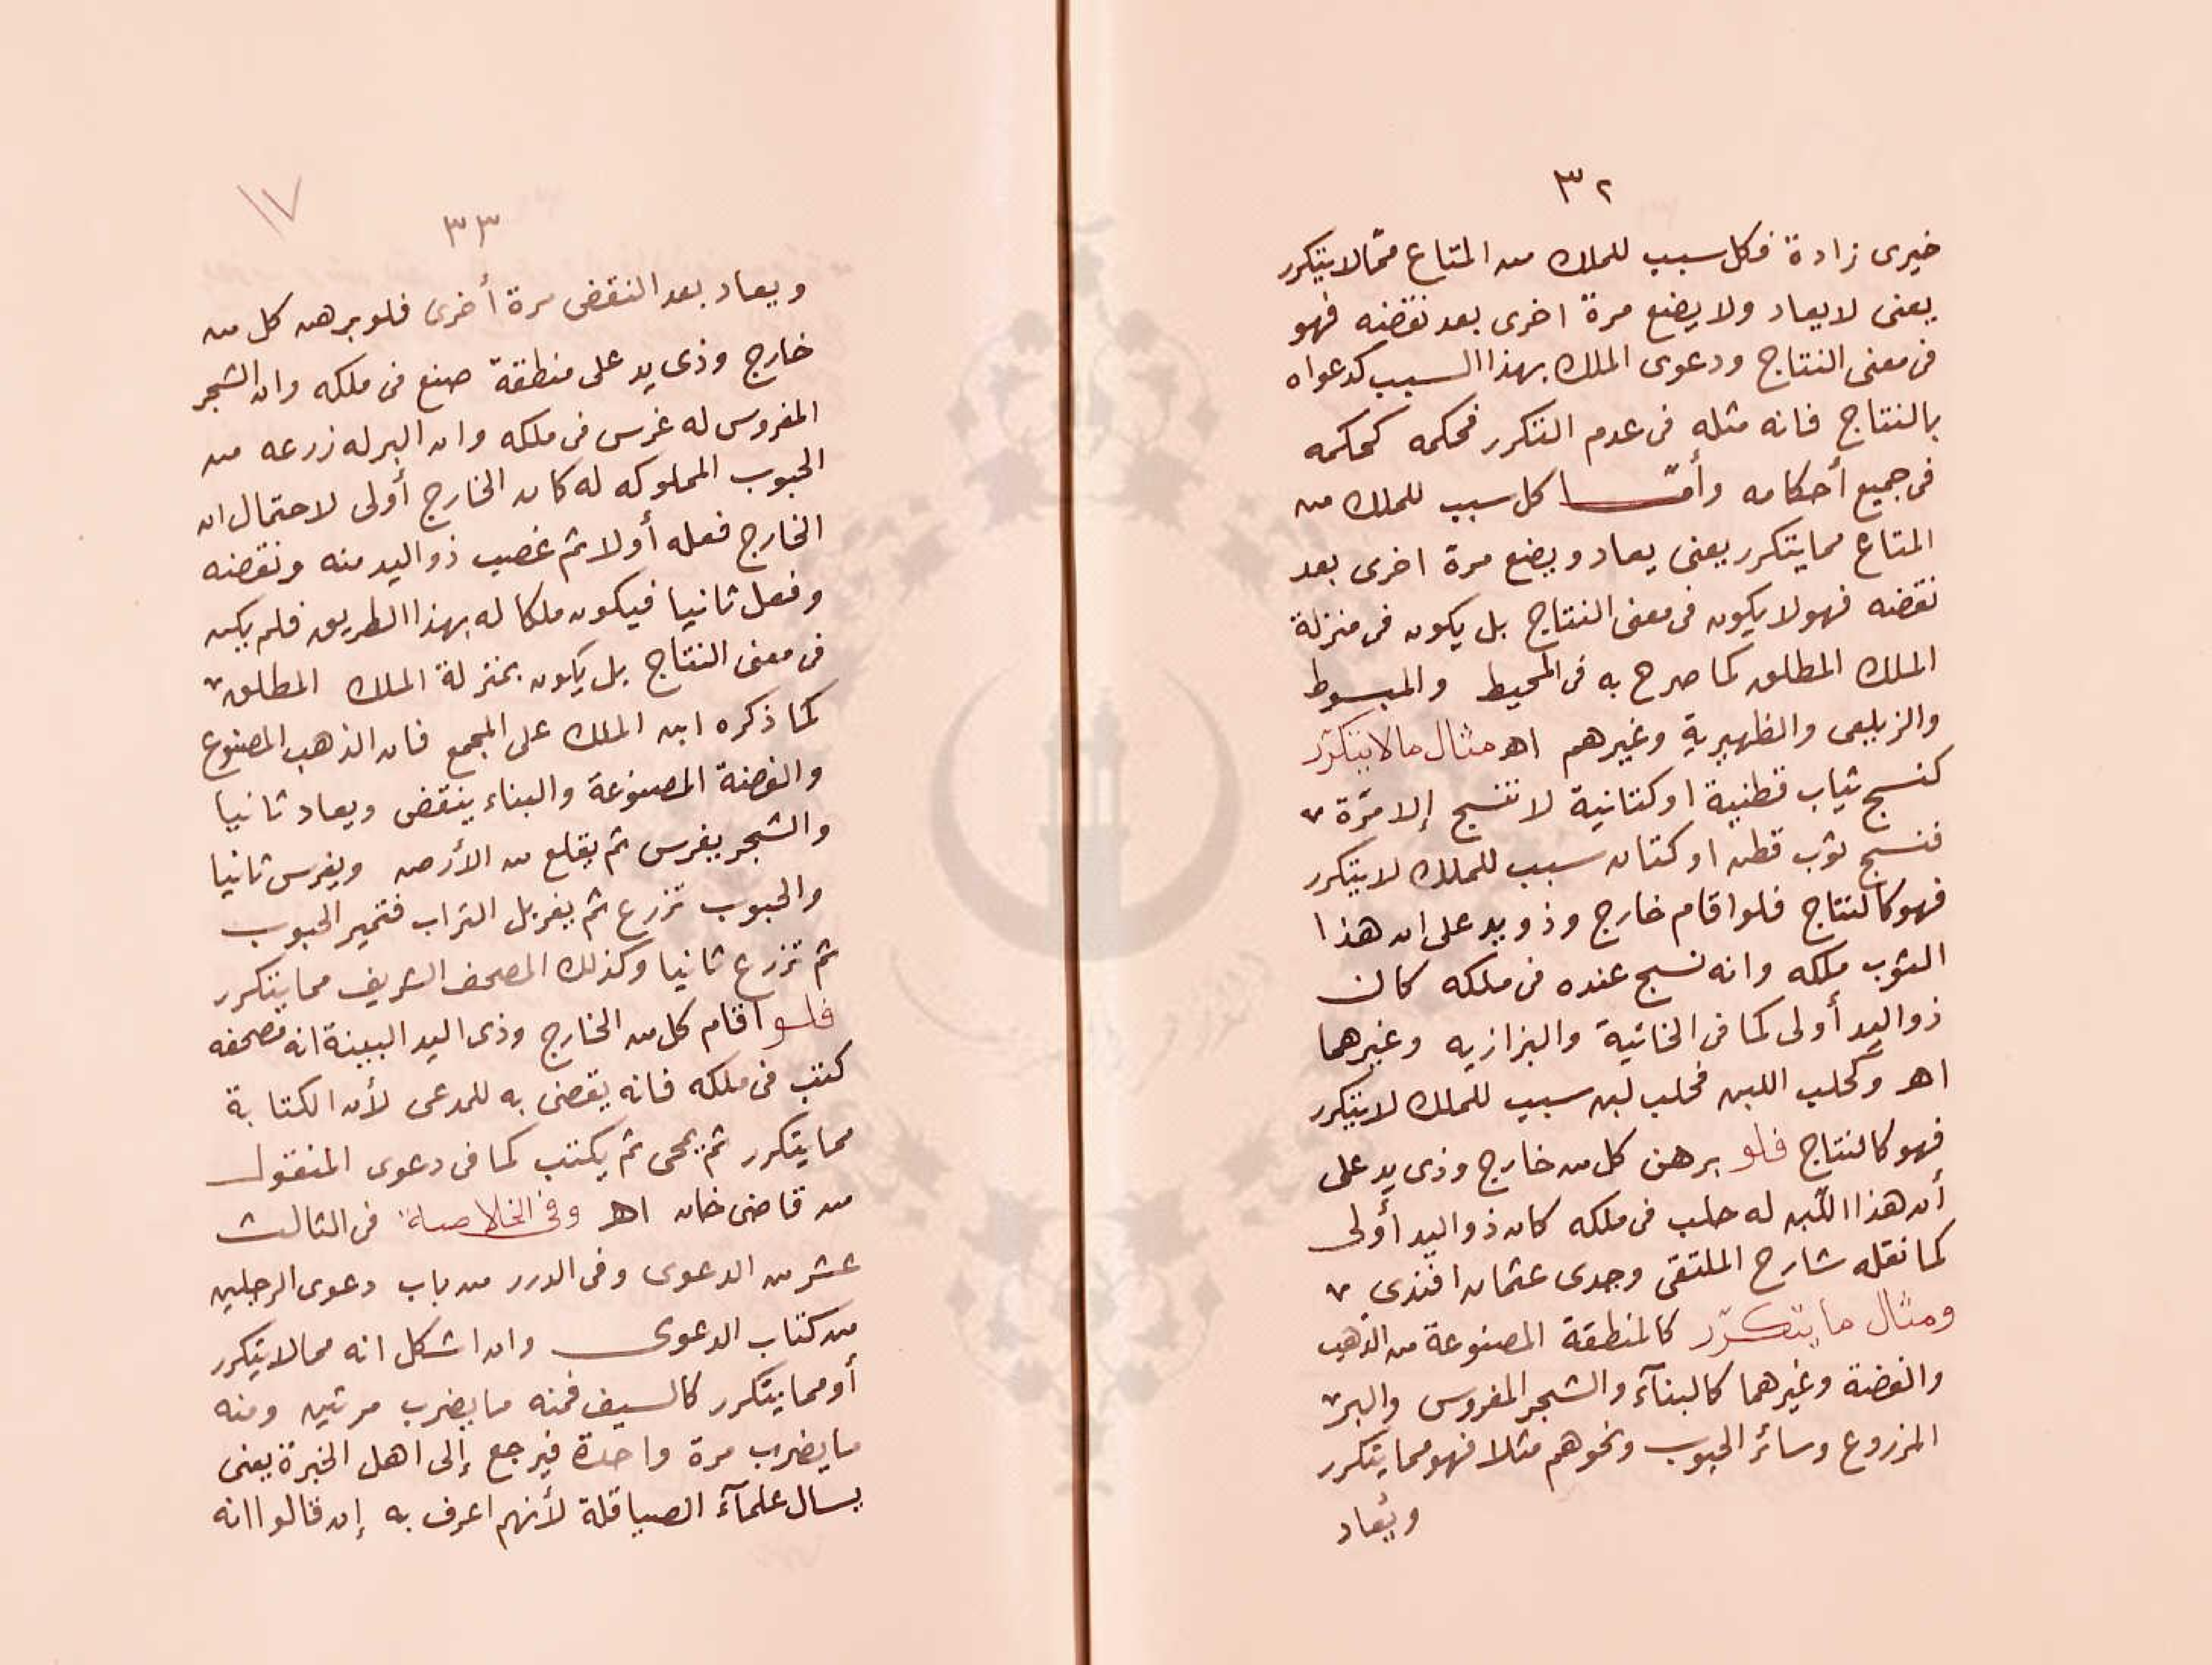 ٣٢
خيرى زادة فكل سبب للملك من المتاع ممّا لا يتكرر
يعنى لا يعاد ولا يضع مرة اخرى بعد نقضه فهو
فى معنى النتاج ودعوى الملك بهذا السبب كدعواه
بالنتاج فانه مثله فى عدم التكرر فحكمه كحكمه
فى جميع أحكامه وأمّا كل سبب للملك من
المتاع مما يتكرر يعنى يعاد ويضع مرة اخرى بعد
نقضه فهو لا يكون فى معنى النتاج بل يكون فى منزلة
الملك المطلق كما صرح به فى المحيط والمبسوط
والزيلعى والظهيرية وغيرهم اهـ مثال ما لا يتكرّر
كنسج ثياب قطنية او كتانية لا تنسج إلا مرّة
فنسج ثوب قطن او كتان سبب للملك لا يتكرر
فهو كالنتاج فلو اقام خارج وذو يد على ان هذا
الثوب ملكه وانه نسج عنده فى ملكه كان
ذو اليد أولى كما فى الخانية والبزازيه وغيرهما
اهـ وكحلب اللبن فحلب لبن سبب للملك لا يتكرر
فهو كالنتاج فلو برهن كل من خارج وذى يد على
أن هذا اللّبن له حلب فى ملكه كان ذو اليد أولى
كما نقله شارح الملتقى وجدى عثمان افندى
ومثال ما يتكرّر كالمنطقة المصنوعة من الذهب
والفضة وغيرهما كالبنآء والشجر المغروس والبر
المزروع وسائر الحبوب ونحوهم مثلا فهو مما يتكرر
ويعاد
١٧
٣٣
ويعاد بعد النقض مرة أخرى فلو برهن كل من
خارج وذى يد على منطقة صنع فى ملكه وان الشجر
المغروس له غرس فى ملكه وان البر له زرعه من
الحبوب المملوكه له كان الخارج أولى لاحتمال ان
الخارج فعله أولا ثم غصب ذو اليد منه ونقضه
وفعل ثانيا فيكون ملكا له بهذا الطريق فلم يكن
فى معنى النتاج بل يكون بمنزلة الملك المطلق
كما ذكره ابن الملك على المجمع فان الذهب المصنوع
والفضة المصنوعة والبناء ينقض ويعاد ثانيا
والشجر يغرس ثم يقلع من الأرض ويغرس ثانيا
والحبوب تزرع ثم يغربل التراب فتميز الحبوب
ثم تزرع ثانيا وكذلك المصحف الشريف مما يتكرر
فلو اقام كل من الخارج وذى اليد البينة انه مصحفه
كتب فى ملكه فانه يقضى به للمدعى لأن الكتابة
مما يتكرر ثم يمحى ثم يكتب كما فى دعوى المنقول
من قاضى خان اهـ وفى الخلاصة فى الثالث
عشر من الدعوى وفى الدرر من باب دعوى الرجلين
من كتاب الدعوى وان اشكل انه مما لا يتكرر
أو مما يتكرر كالسيف فمنه ما يضرب مرتين ومنه
ما يضرب مرة واحدة فيرجع إلى اهل الخبرة يعنى
يسال علمآء الصياقلة لأنهم اعرف به إن قالوا انه